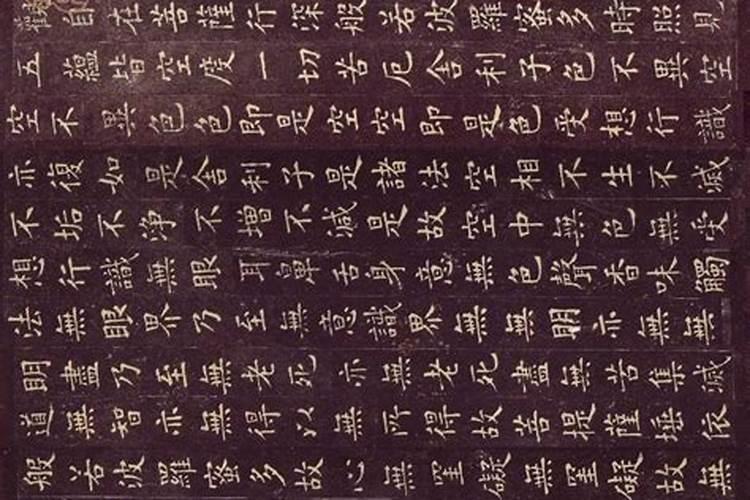 觀自在菩薩行深般若波羅蜜多時照見
五蘊皆空度一切苦厄舍利子色不異空
空不異色色即是空空即是色受想行識
亦復如是舍利子是諸法空相不生不滅
不垢不淨不增不減是故空中無色無受
想行識無眼耳鼻舌身意無色聲香味觸
法無眼界乃至無意識界無無明亦無無
明盡乃至無老死亦無老死盡無苦集滅
道無智亦無得以無所得故菩提薩埵依
般若波羅蜜多故心無罣礙無罣礙故無